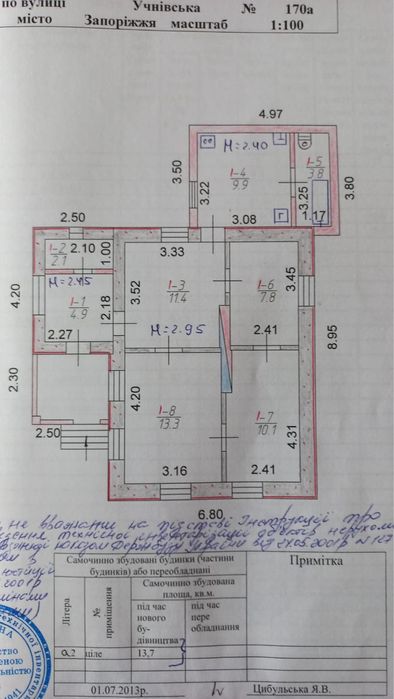 по вулиці Учнівська № 170а
місто Запоріжжя масштаб 1:100
4.97
М=2.40
3.50
3.22
I-4
9.9
I-5
3.8
3.25
3.80
3.08
Г
1.17
2.50
I-2
2.1
2.10
1.00
3.33
4.20
М=2.45
I-1
4.9
2.18
3.52
I-3
11.4
I-6
7.8
3.45
2.27
М=2.95
2.41
8.95
2.30
2.50
4.20
I-8
13.3
I-7
10.1
4.31
3.16
2.41
6.80
не вважати на підставі Інструкції про
технічної інвентаризації
України від 24.05.2001р N127
Самочинно збудовані будинки (частини
будинків) або переобладнані
Примітка
Літера.
№
приміщення
Самочинно збудована
площа, кв.м.
під час
нового
бу-
дівництва
під час
пере
обладнання
а2 ціле 13,7
01.07.2013р. Цибульська Я.В.